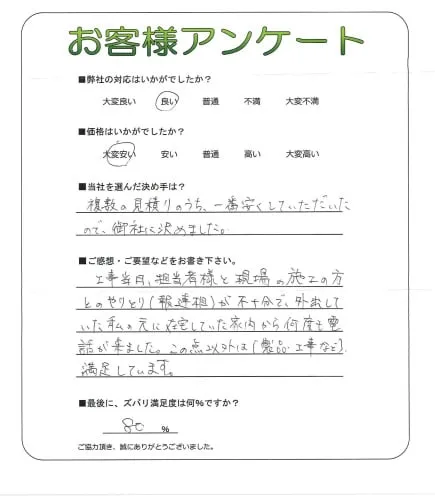 お客様アンケート
■弊社の対応はいかがでしたか？
大変良い 良い 普通 不満 大変不満
■価格はいかがでしたか？
大変安い 安い 普通 高い 大変高い
■当社を選んだ決め手は？
複数の見積りのうち、一番安くしていただいた
ので、御社に決めました。
■ご感想・ご要望などをお書き下さい。
工事当日、担当者様と現場の施工の方
とのやりとり(報連相)が不十分で、外出して
いた私の元に在宅していた家内から何度も電
話が来ました。この点以外は(製品・工事など)、
満足しています。
■最後に、ズバリ満足度は何%ですか？
80 %
ご協力頂き、誠にありがとうございました。